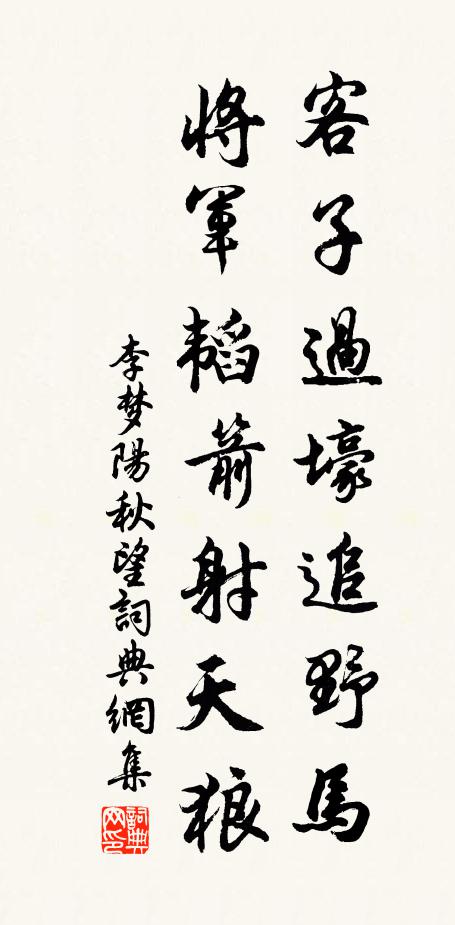 客子過壕追野馬
將軍韜箭射天狼
李梦陽秋望詞典網集
詞典网印